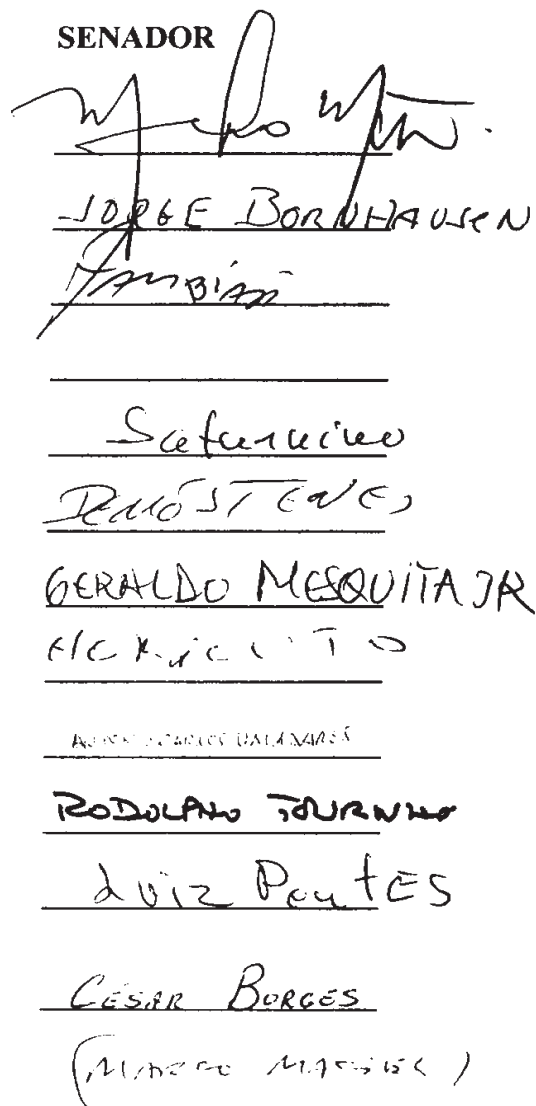 SENADOR
JORGE BORNHAUSEN
ZAMBIASI
Saturnino
DEMÓSTENES
GERALDO MESQUITA JR
HERÁCLITO
CARLOS VALADARES
RODOLPHO TOURINHO
LUIZ PONTES
CÉSAR BORGES
(MARCO MACIEL)